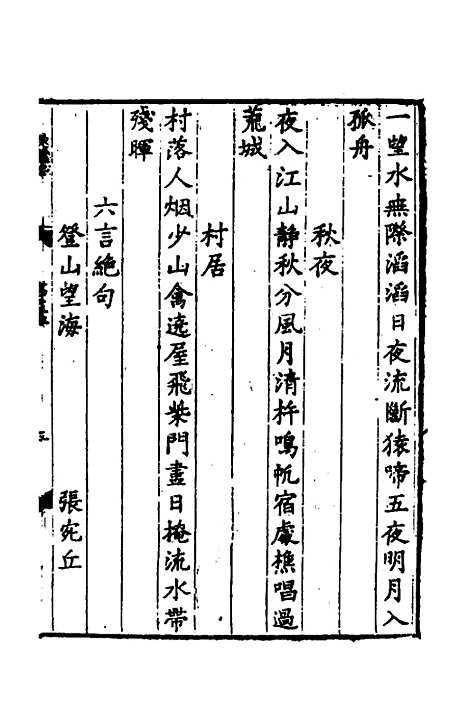 一望水無際滔滔日夜流斷猿啼五夜明月入
孤舟
秋夜
夜入江山靜秋分風月清杵鳴帆宿處樵唱過
荒城
村居
村落人烟少山禽遶屋飛柴門盡日掩流水帶
殘暉
六言絶句
登山望海 張宛丘